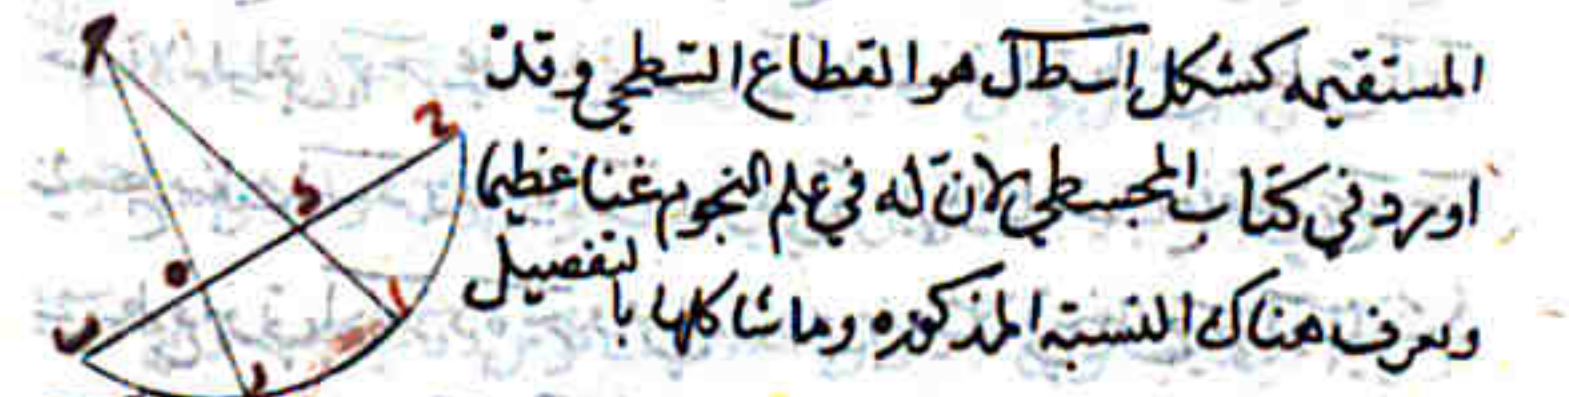 المستقيمه كشكل اسطال هو القطاع السطحي وقد
اورد في كتاب المجسطي لان له في علم النجوم غنا عظيما
ويعرف هناك النسبة المذكوره وما شاكلها بالتفصيل